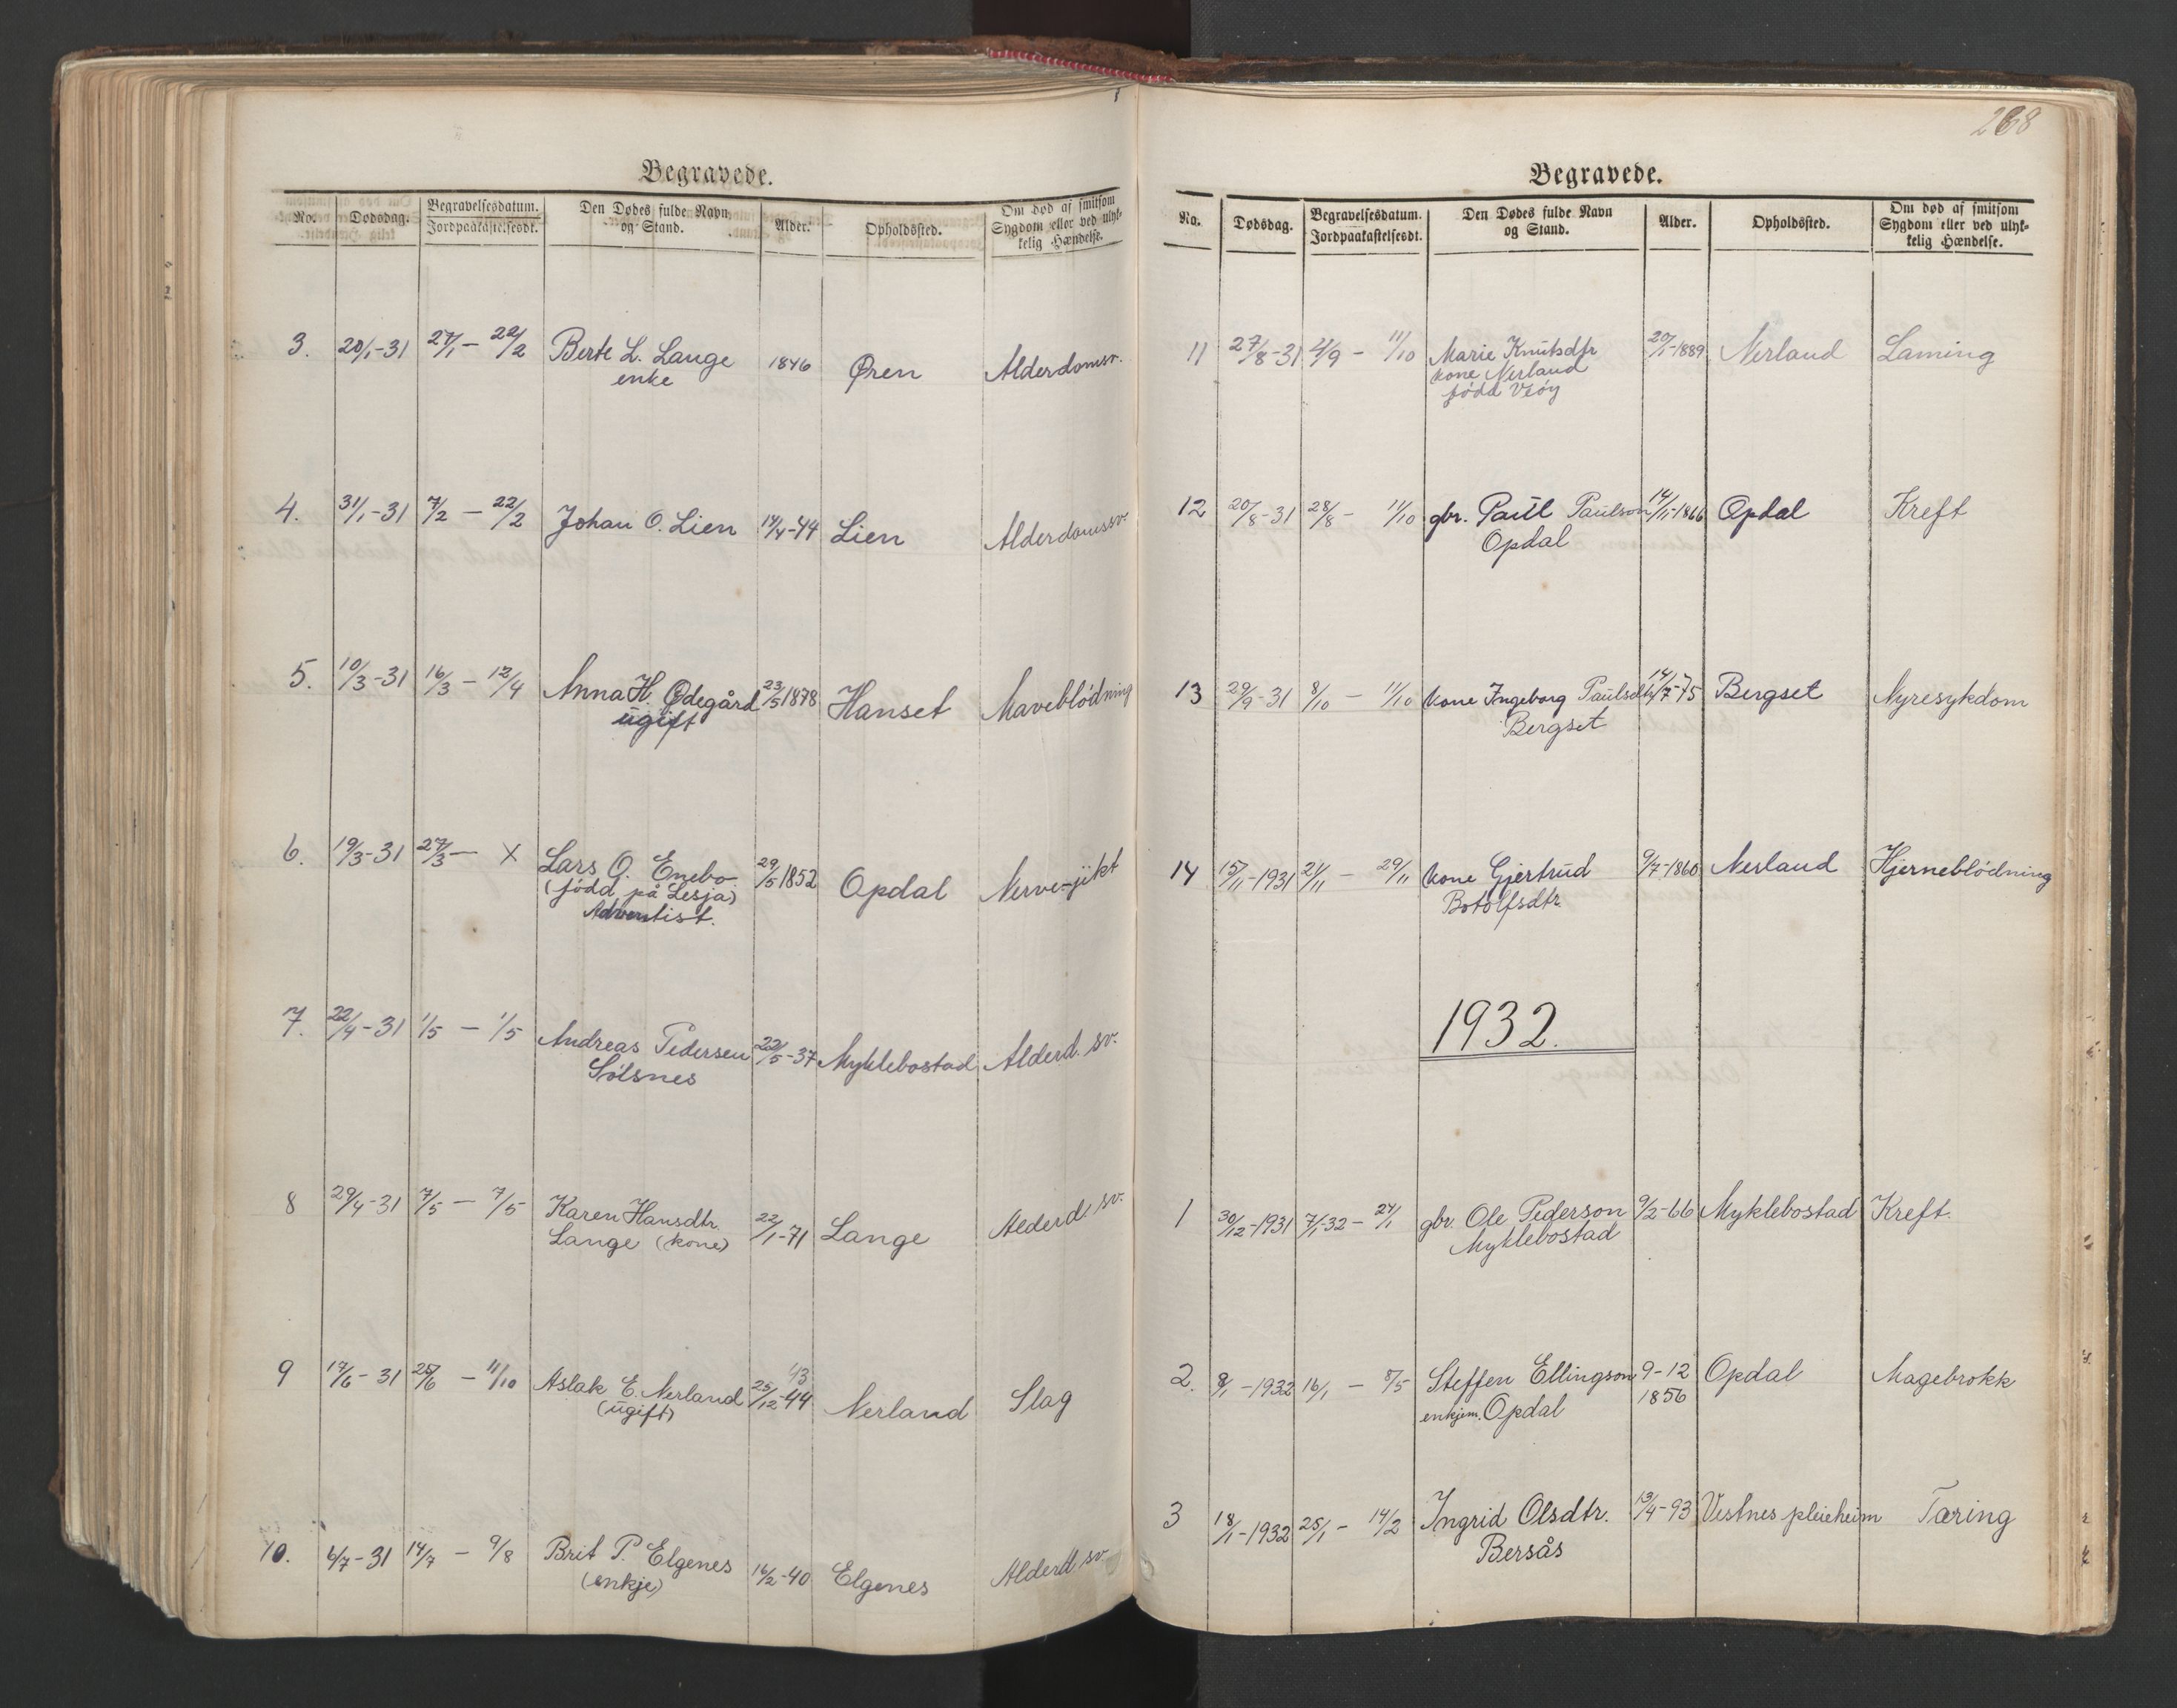 Begravede.
No. Dødsdag. Begravelsesdatum. Jordpaakastelsesdt. Den Dødes fulde Navn og Stand. Alder. Opholdssted. Om død af smitsom Sygdom eller ved ulyk-kelig Hændelse.
3. 20/1-31 27/1 - 22/2 Berte L. Lange 1846 Øren Alderdomsv.
enke
4. 31/1-31 7/2 - 22/2 Johan O. Lien 14/4-44 Lien Alderdomssv.
5. 10/3-31 16/3 - 12/4 Anna H. Ødegård 23/5 1878 Hanset Maveblödning
ugift
6. 19/3-31 27/3 - X Lars O. Enebo 29/5 1852 Opdal Nerve-jikt
(född på Lesja)
Adventist.
7. 22/4-31 1/5 - 1/5 Andreas Pedersen 22/5-37 Myklebostad Alderd. sv.
Sölsnes
8 29/4-31 7/5 - 7/5 Karen Hansdtr. 22/1-71 Lange Alderd. sv.
Lange (kone)
43
9 17/6-31 25/6 - 11/10 Aslak E. Nerland 25/12-44 Nerland Slag
(ugift)
10. 6/7-31 14/7 - 9/8 Brit P. Elgenes 16/2-40 Elgenes Alderd. sv.
(enkje)
268
Begravede.
No. Dødsdag. Begravelsesdatum. Jordpaakastelsesdt. Den Dødes fulde Navn og Stand. Alder. Opholdssted. Om død af smitsom Sygdom eller ved ulyk-kelig Hændelse.
11 27/8-31 2/9 - 11/10 Marie Knutsdtr 20/1-1889 Nerland Laming
kone Nerland
född Veöy
12 20/8-31 28/8 - 11/10 gbr. Paul Paulson 14/11-1866 Opdal Kreft
Opdal
13 29/9-31 8/10 - 11/10 kone Ingeborg Paulsdtr 14/7-75 Bergset Nyresykdom
Bergset
14 15/11-1931 21/11 - 29/11 kone Gjertrud 9/7-1860 Nerland Hjerneblödning
Botolfsdtr.
1932.
1 30/12-1931 7/1-32 - 24/1 gbr. Ole Pederson 9/2-66 Myklebostad Kreft.
Myklebostad
2. 9/1-1932 16/1 - 8/5 Steffen Ellingson 9-12 Opdal Magebrokk
enkjem. Opdal 1856
3 18/1-1932 25/1 - 14/2 Ingrid Olsdtr. 13/4-93 Vestnes pleieheim Tæring
Bersås